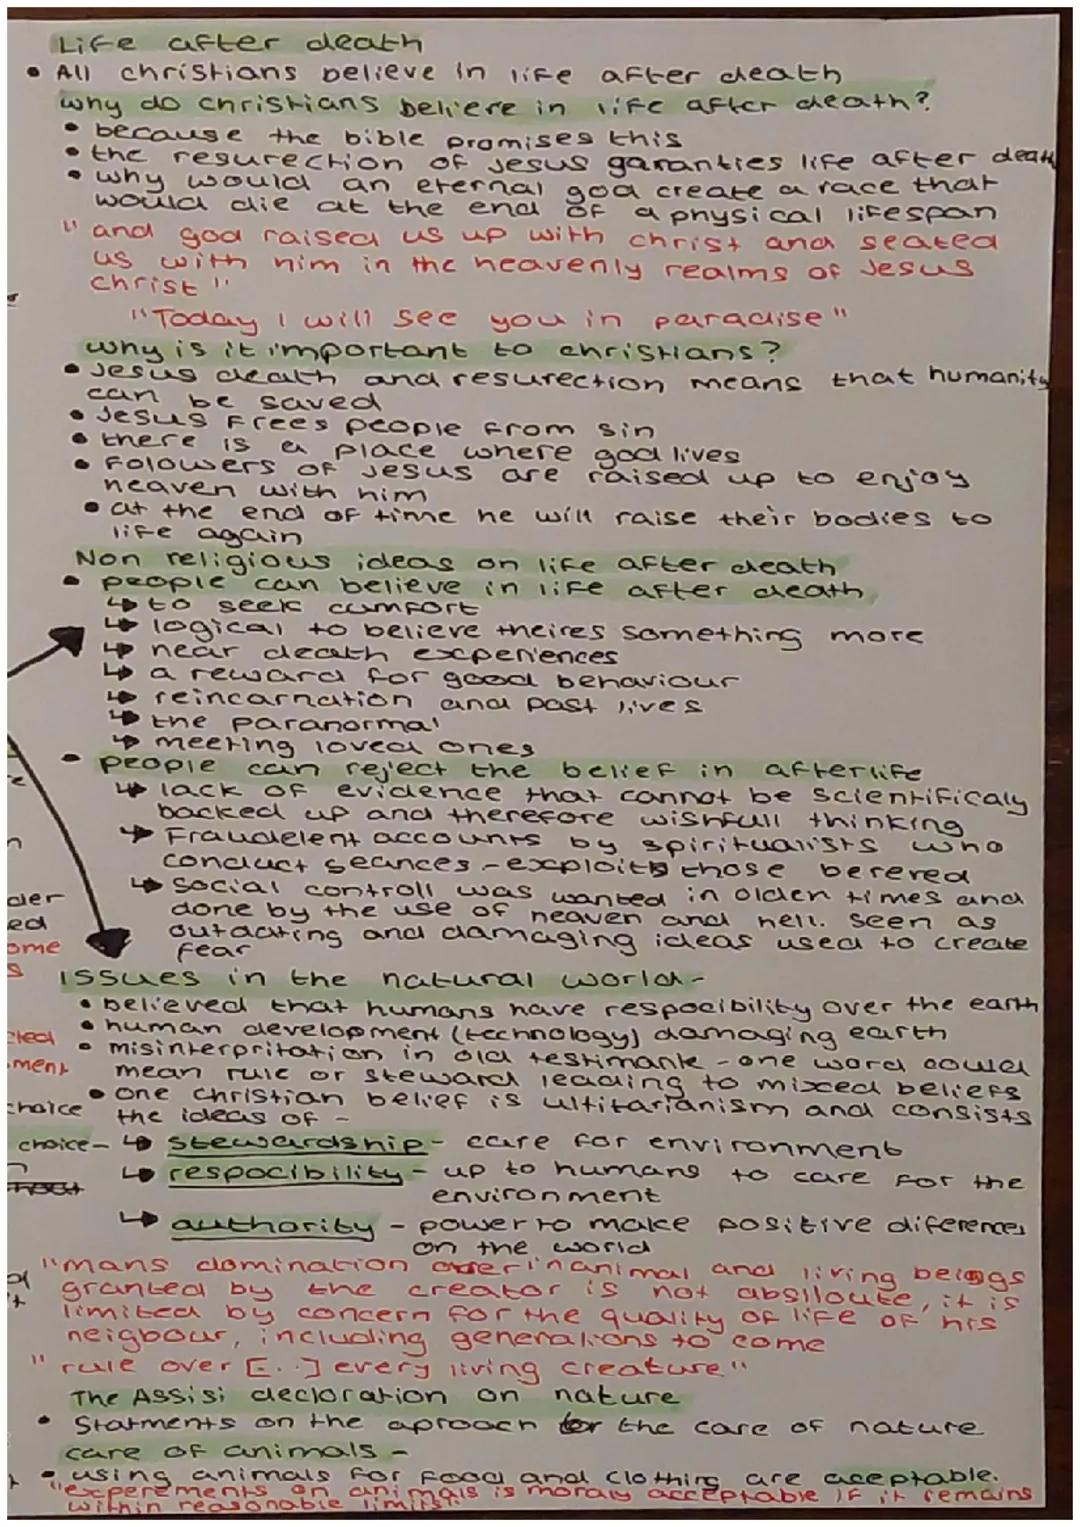 Life after death
• All christians believe in life after death
why do christians believe in life after death?
• because the bible promises this
• the resurection of Jesus garanties life after death
• why would an eternal god create a race that
would die at the end of a physical lifespan
"and god raised us up with christ and seated
us with him in the heavenly realms of Jesus
christ"
"Today I will see you in paradise"
why is it important to christians?
• Jesus death and resurection means that humanity
can be saved
• Jesus Frees people from sin
• there is a place where god lives
• Folowers of Jesus are raised up to enjoy
heaven with him
• at the end of time he will raise their bodies to
life again
Non religious ideas on life after death
• people can believe in life after death
↳ to seek cumfort
↳ logical to believe theires something more
↳ near death experiences
↳ a reward for good behaviour
↳ reincarnation and past lives
↳ the paranormal
↳ meeting loved ones
• people can reject the belief in afterlife
↳ lack of evidence that cannot be scientificaly
backed up and therefore wishfull thinking
↳ Fraudelent accounts by spiritualists who
conduct seances - exploits those berered
↳ social controll was wanted in olden times and
done by the use of heaven and hell. seen as
outdating and damaging ideas used to create
fear
der
ed
ome
s
Issues in the natural world -
• believed that humans have respocibility over the earth
• human development (technology) damaging earth
• misinterpritation in old testimank - one word could
mean rule or steward leading to mixed beliefs
• one christian belief is ultitarianism and consists
the ideas of -
ment
choice
choice -
↳ stewardship - care for environment
↳ respocibility - up to humans to care for the
environment
↳ authority - power to make positive diferences
on the world
"mans domination over inanimal and living beings
granted by the creator is not absiloute, it is
limited by concern for the quality of life of his
neigbour, including generations to come
"rule over [..] every living creature"
The Assisi decloration on nature
• Statments on the aproach for the care of nature
care of animals -
• using animals for food and clothing are aceptable.
"experements on animals is moraly acceptable if it remains
within reasonable limits".